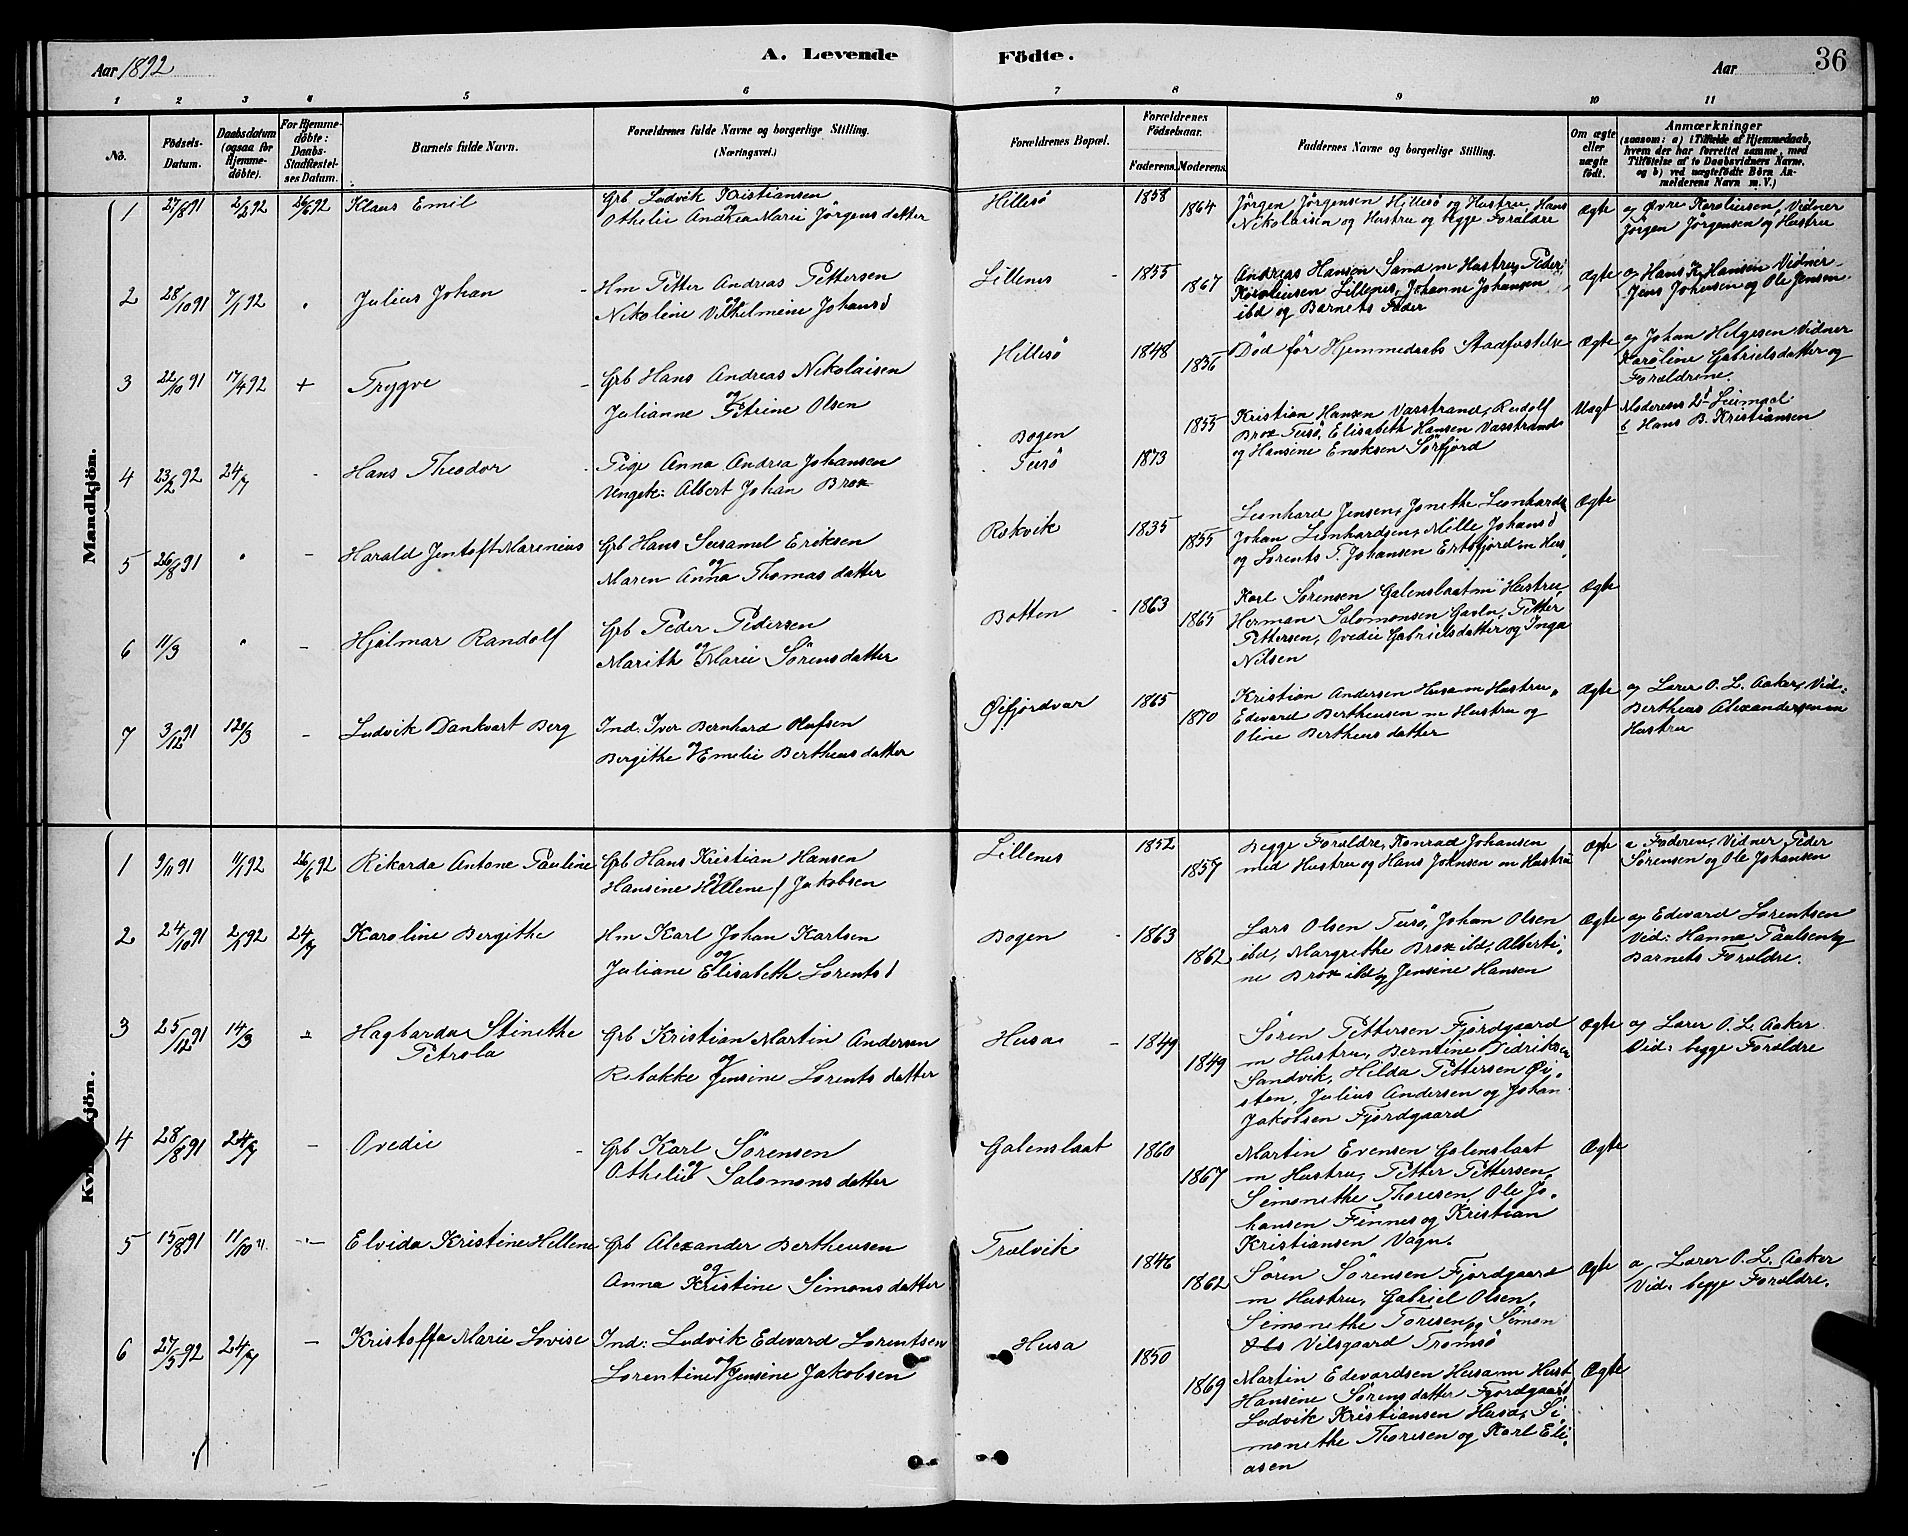 Aar 1892
A. Levende Födte.
Aar
36
1 2 3 4 5 6 7 8 9 10 11
No.
Födsels-Datum.
Daabsdatum (ogsaa for Hjemme-döbte).
For Hjemme-döbte: Daabs-Stadfæstel-ses Datum.
Barnets fulde Navn.
Forældrenes fulde Navne og borgerlige Stilling. (Næringsvei.)
Forældrenes Bopæl.
Forældrenes Födselsaar.
Faderens. Moderens.
Faddernes Navne og borgerlige Stilling.
Om ægte eller uægte födt.
Anmærkninger
(saasom: a) i Tilfælde af Hjemmedaab, hvem der har forrettet samme, med Tilföielse af to Daabsvidners Navne, og b) ved uægtefödte Börn An-melderens Navn m. V.)
Mandkjön.
1 27/8 91 2/2 92 26/6 92 Klaus Emil
Grb Ludvik Kristiansen
og
Othelie Andrea Marie Jörgensdatter
Hillesö 1858 1864
Jörgen Jörgensen Hillesö og Hustru, Hans
Nikolaisen og Hustru og begge Forældre
Ægte
a, Øvre Karoliusen, Vidner
Jörgen Jörgensen og Hustru
2 28/10 91 7/1 92 " Julius Johan
Hm Petter Andreas Pettersen
og
Nikoline Vilhelmine Johansd
Lillenes 1855 1867
Andreas Hansen Sand m Hustru, Peder
Karoliusen Lillenes, Johanne Johansen
ibd og Barnets Fader
Ægte
a, Hans K. Hansen Vidner
Jens Johnsen og Ole Jensen
3 22/10 91 17/4 92 + Trygve
Grb Hans Andreas Nikolaisen
og
Julianne Petrine Olsen
Hillesö 1848 1856
Död før Hjemmedaabs Stadfæstelse
Ægte
a, Johan Helgesen Vidner
Karoline Gabrielsdatter og
Forældrene.
4 23/2 92 24/7 - Hans Theodor
Pige Anna Andrea Johansen
Ungek: Albert Johan Brox
Bogen
Tusö 1873 1855
Kristian Hansen Vasstrand, Rudolf
Brox Tusö, Elisabeth Hansen Vasstrand
og Hansine Enoksen Sörfjord
Uægt
Moderens 2d Leiermaal
b Hans B. Kristiansen
5 26/8 91 " - Harald Jentoft Marenius
Grb Hans Susamel Eriksen
og
Maren Anna Thomasdatter
Rekvik 1835 1855
Leonhard Jensen, Jonethe Leonhards
Johan Leonhardsen, Mille Johansd
og Lorents T. Johansen Ertsfjord m Hus.
Ægte
6 11/3 " - Hjalmar Randolf
Grb Peder Pedersen
og
Marith Marie Sörensdatter
Botten 1863 1865
Karl Sörensen Galenslaat m Hustru,
Herman Salomonsen Gavln, Petter
Pettersen, Ovedie Gabrielsdatter og Inga
Nilsen
Ægte
7 3/12 91 12/3 - Ludvik Dankvart Berg
Ind. Iver Bernhard Olufsen
og
Bergithe Emelie Bertheusdatter
Øifjordvær 1865 1870
Kristian Andersen Husa m Hustru,
Edvard Bertheusen m Hustru og
Oline Bertheusdatter
Ægte
a, Lærer O. L. Aaker, Vid:
Bertheus Alexandersen m
Hustru
Kvindkjön.
1 9/11 91 11/1 92 26/6 92 Rikarda Antone Pauline
Grb Hans Kristian Hansen
og
Hansine Hellene Jakobsen
Lillenes 1852 1857
Begge Forældre, Konrad Johansen
med Hustru og Hans Johnsen m Hustru
Ægte
a Faderen, Vidner Peder
Sörensen og Ole Johansen
2 24/10 91 2/1 92 24/7 Karoline Bergithe
Hm Karl Johan Karlsen
og
Juliane Elisabeth Lorentsd
Bogen 1863 1862
Lars Olsen Tusö, Johan Olsen
ibd, Margrethe Brox ibd, Alberti-
ne Brox ibd og Jensine Hansen
Ægte
a, Edvard Lorentsen
Vid: Hanna Paulsen og
Barnets Forældre.
3 25/12 91 14/3 " Hagbarda Stinethe
Petrola
Grb Kristian Martin Andersen
og
Rebekke Jensine Lorentsdatter
Husa 1849 1849
Sören Pettersen Fjordgaard
m Hustru, Berntine Didriksen
Sandvik, Hilda Pettersen Øi-
sten, Julius Andersen og Johan
Jakobsen Fjordgaard
Ægte
a, Lærer O. L. Aaker
Vid: begge Forældre
4 28/8 91 24/7 - Ovedie
Grb Karl Sörensen
og
Othelie Salomonsdatter
Galenslaat 1860 1867
Martin Evensen Galenslaat
m Hustru, Petter Pettersen,
Simonethe Thoresen, Ole Jo-
hansen Finnes og Kristian
Kristiansen Vagn.
Ægte
5 15/8 91 11/10 " - Elvida Kristine Hellene
Grb Alexander Bertheusen
og
Anna Kristine Simonsdatter
Trælvik 1846 1862
Sören Sörensen Fjordgaard
m Hustru, Gabriel Olsen,
Simonethe Toresen og Simon
Vilsgaard Tromsö
Ægte
a, Lærer O. L. Aaker
Vid: begge Forældre.
6 27/5 92 24/7 - Kristoffa Marie Lovise
Ind: Ludvik Edvard Lorentsen
og
Lorentine Jensine Jakobsen
Husa 1850 1869
Martin Edvardsen Husa m Hust
Hansine Sörensdatter Fjordgaard
Ludvik Kristiansen Husa, Si-
monethe Thoresen og Karl Eli-
asen
Ægte